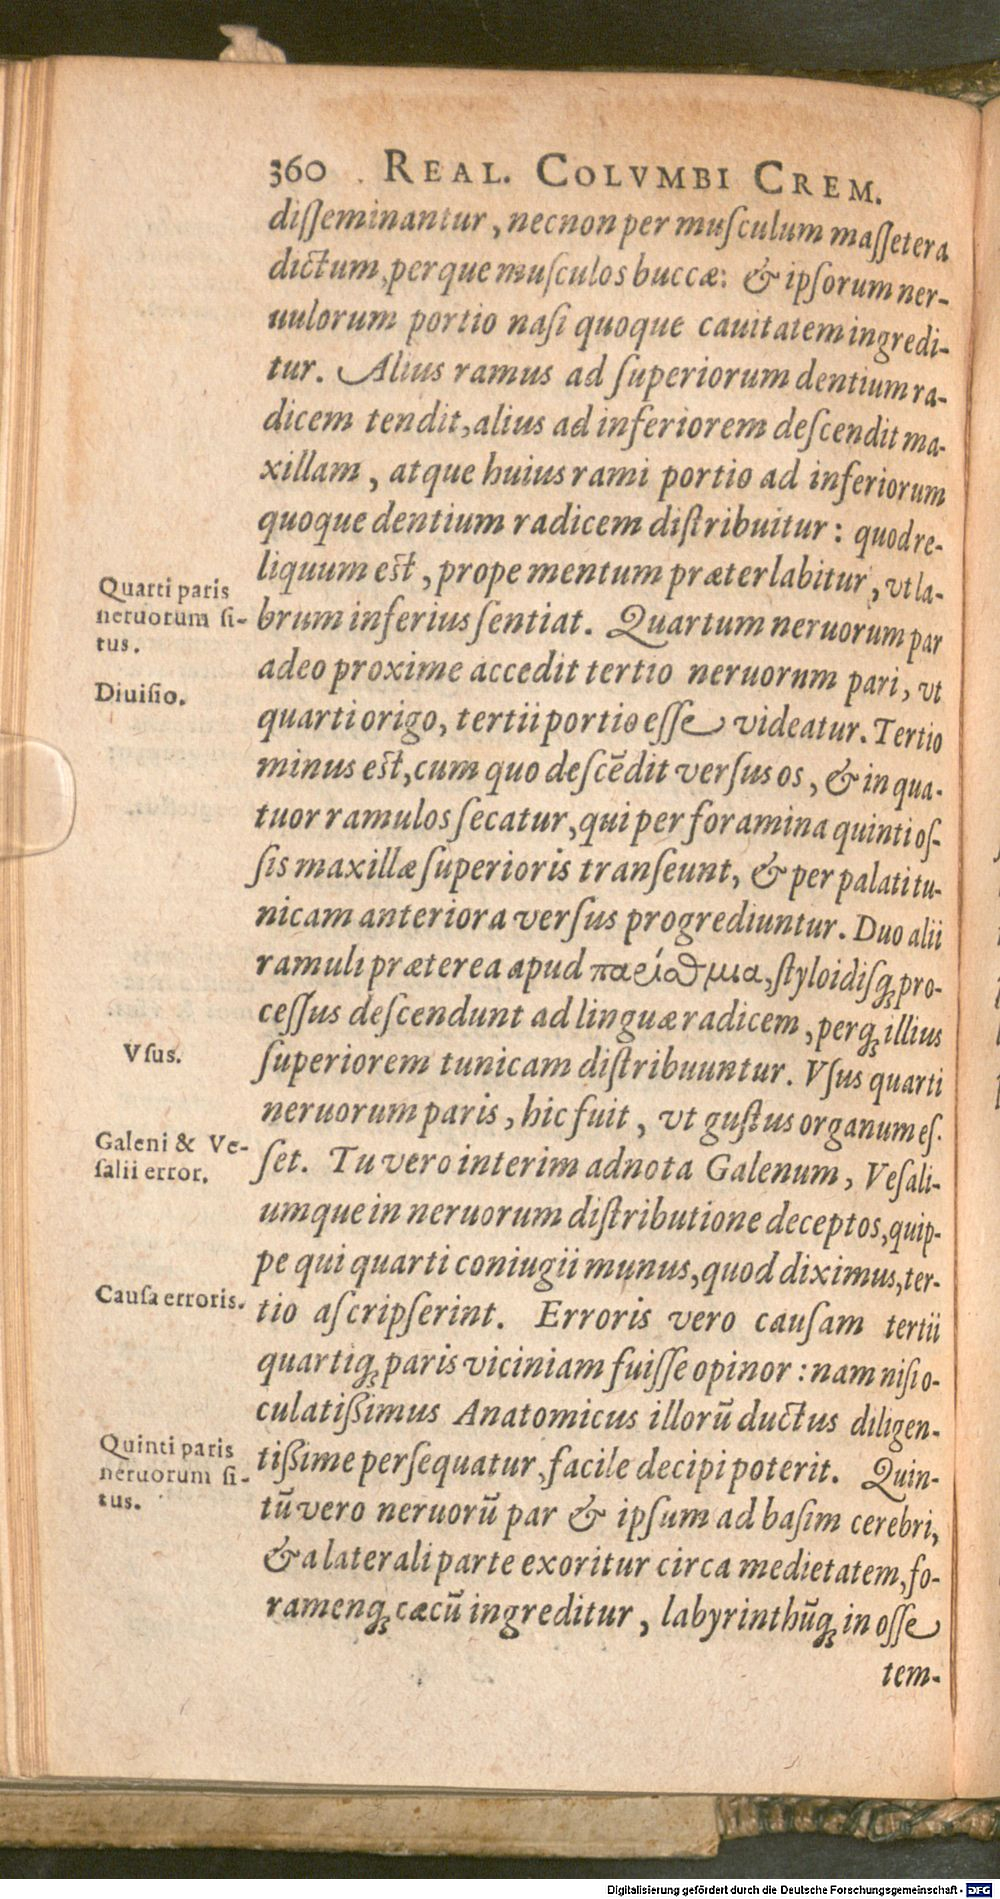 360 REAL. COLVMBI CREM.
diſſeminantur, necnon per muſculum maſſetera
dictum, perque muſculos buccæ: & ipſorum ner-
uulorum portio naſi quoque cauitatem ingredi-
tur. Alius ramus ad ſuperiorum dentium ra-
dicem tendit, alius ad inferiorem deſcendit ma-
xillam, atque huius rami portio ad inferiorum
quoque dentium radicem diſtribuitur: quod re-
liquum est, prope mentum præterlabitur, vt la-
Quarti paris
neruorum ſi-
tus.
brum inferius ſentiat. Quartum neruorum par
adeo proxime accedit tertio neruorum pari, vt
Diuiſio.
quarti origo, tertii portio eſſe videatur. Tertio
minus est, cum quo deſcẽdit verſus os, & in qua-
tuor ramulos ſecatur, qui per foramina quinti oſ-
ſis maxillæ ſuperioris tranſeunt, & per palati tu-
nicam anteriora verſus progrediuntur. Duo alii
ramuli præterea apud παρίσθμια, ſtyloidiſq; pro-
ceſſus deſcendunt ad linguæ radicem, perq; illius
Vſus.
ſuperiorem tunicam diſtribuuntur. Vſus quarti
neruorum paris, hic fuit, vt guſtus organum eſ-
Galeni & Ve-
ſalii error.
ſet. Tu vero interim adnota Galenum, Veſali-
umque in neruorum diſtributione deceptos, quip-
pe qui quarti coniugii munus, quod diximus, ter-
Cauſa erroris.
tio aſcripſerint. Erroris vero cauſam tertii
quartiq; paris viciniam fuiſſe opinor: nam niſi o-
culatiſsimus Anatomicus illorũ ductus diligen-
Quinti paris
neruorum ſi-
tus.
tiſsime perſequatur, facile decipi poterit. Quin-
tũ vero neruorũ par & ipſum ad baſim cerebri,
& a laterali parte exoritur circa medietatem, fo-
ramenq; cæcũ ingreditur, labyrinthũq; in oſſe
tem-
Digitalisierung gefördert durch die Deutsche Forschungsgemeinschaft - DFG